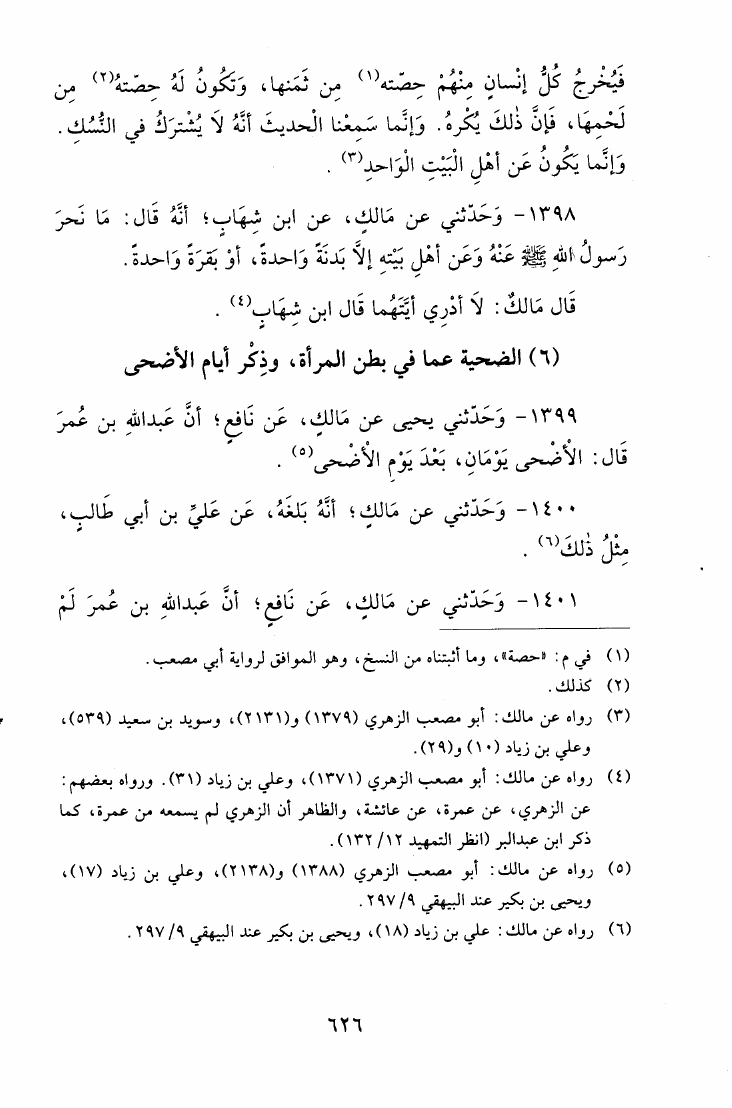 فَيُخْرِجُ كُلُّ إنْسانٍ مِنْهُمْ حِصّته(١) مِن ثَمَنها، وَتَكُونُ لَهُ حِصّتهُ(٢) مِن
لَحْمِهَا، فَإنَّ ذٰلكَ يُكْرهُ. وَإنَّما سَمِعْنا الْحديثَ أنَّهُ لاَ يُشْتركُ في النُّسُكِ.
وَإنَّما يَكُونُ عَن أهْلِ الْبَيْتِ الْوَاحدِ(٣) .
١٣٩٨- وَحَدّثني عن مَالكٍ، عن ابن شِهَابٍ؛ أنَّهُ قَال: مَا نَحرَ
رَسولُ اللهِ ﷺ عَنْهُ وَعَن أهْلِ بَيْتهِ إلاَّ بَدنَةً وَاحدةً، أوْ بَقرَةً وَاحدةً.
قَال مَالكٌ: لاَ أدْرِي أيَّتَهُما قَال ابن شِهَابٍ(٤) .
(٦) الضحية عما في بطن المرأة، وذِكْر أيام الأضحى
١٣٩٩- وَحَدّثني يحيى عن مَالكٍ، عَن نَافعٍ؛ أنَّ عَبدالله بن عُمرَ
قَال: الأضْحى يَوْمَانِ، بَعْدَ يَوْمِ الأضْحى(٥) .
١٤٠٠- وَحَدّثني عن مَالكٍ؛ أنَّهُ بَلغَهُ، عَن عَليِّ بن أبي طَالبٍ،
مِثْلُ ذٰلكَ(٦) .
١٤٠١- وَحَدّثني عن مَالكٍ، عَن نَافعٍ؛ أنَّ عَبدالله بن عُمرَ لَمْ
(١) في م: «حصة»، وما أثبتناه من النسخ، وهو الموافق لرواية أبي مصعب.
(٢) كذلك.
(٣) رواه عن مالك: أبو مصعب الزهري (١٣٧٩) و(٢١٣١)، وسويد بن سعيد (٥٣٩)،
وعلي بن زياد (١٠) و(٢٩).
(٤) رواه عن مالك: أبو مصعب الزهري (١٣٧١)، وعلي بن زياد (٣١). ورواه بعضهم:
عن الزهري، عن عمرة، عن عائشة، والظاهر أن الزهري لم يسمعه من عمرة، كما
ذكر ابن عبدالبر (انظر التمهيد ١٢/ ١٣٢).
(٥) رواه عن مالك: أبو مصعب الزهري (١٣٨٨) و(٢١٣٨)، وعلي بن زياد (١٧)،
ويحيى بن بكير عند البيهقي ٩/ ٢٩٧.
(٦) رواه عن مالك: علي بن زياد (١٨)، ويحيى بن بكير عند البيهقي ٩/ ٢٩٧.
٦٢٦